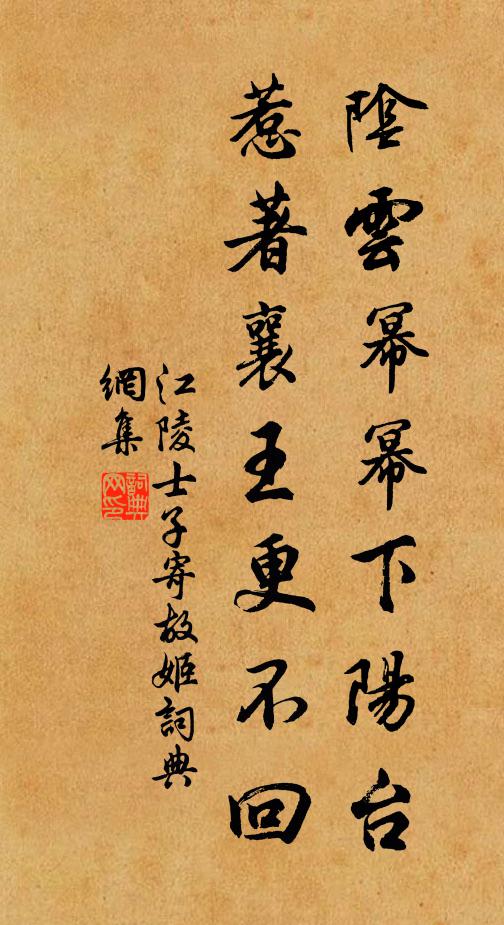 陰雲幂幂下陽台
惹著襄王更不回
江陵士子寄故姬詞典
網集
詞典
网印